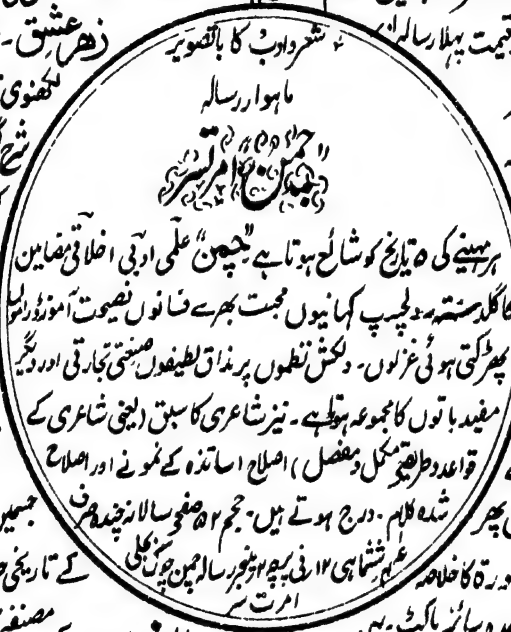 شعر و ادب کا باتصویر
ماہوار رسالہ
"چمن" امرتسر
ہر مہینے کی ۵ تاریخ کو شائع ہوتا ہے "چمن" علمی ادبی اخلاقی مضامین
کا گلدستہ۔ دلچسپ کہانیوں محبت بھرے فسانوں نصیحت آموز
پھڑکتی ہوئی غزلوں۔ دلکش نظموں پر مذاق لطیفوں صنعتی تجارتی اور دیگر
مفید باتوں کا مجموعہ ہوتا ہے۔ نیز شاعری کا سبق (یعنی شاعری کے
قواعد و طریقے مکمل و مفصل) اصلاح اساتذہ کے نمونے اور اصلاح
شدہ کلام۔ درج ہوتے ہیں۔ حجم ۵۲ صفحہ سالانہ چندہ صرف
ششماہی ۱۲ فی پرچہ ۲ منیجر رسالہ چمن چوک
امرت سر
زہر عشق۔
لکھنوی
شرح
قیمت پہلا رسالہ
جسمیں
کے تاریخی
مصنفہ
پھر
کا خلاصہ
سائز پاکٹ۔